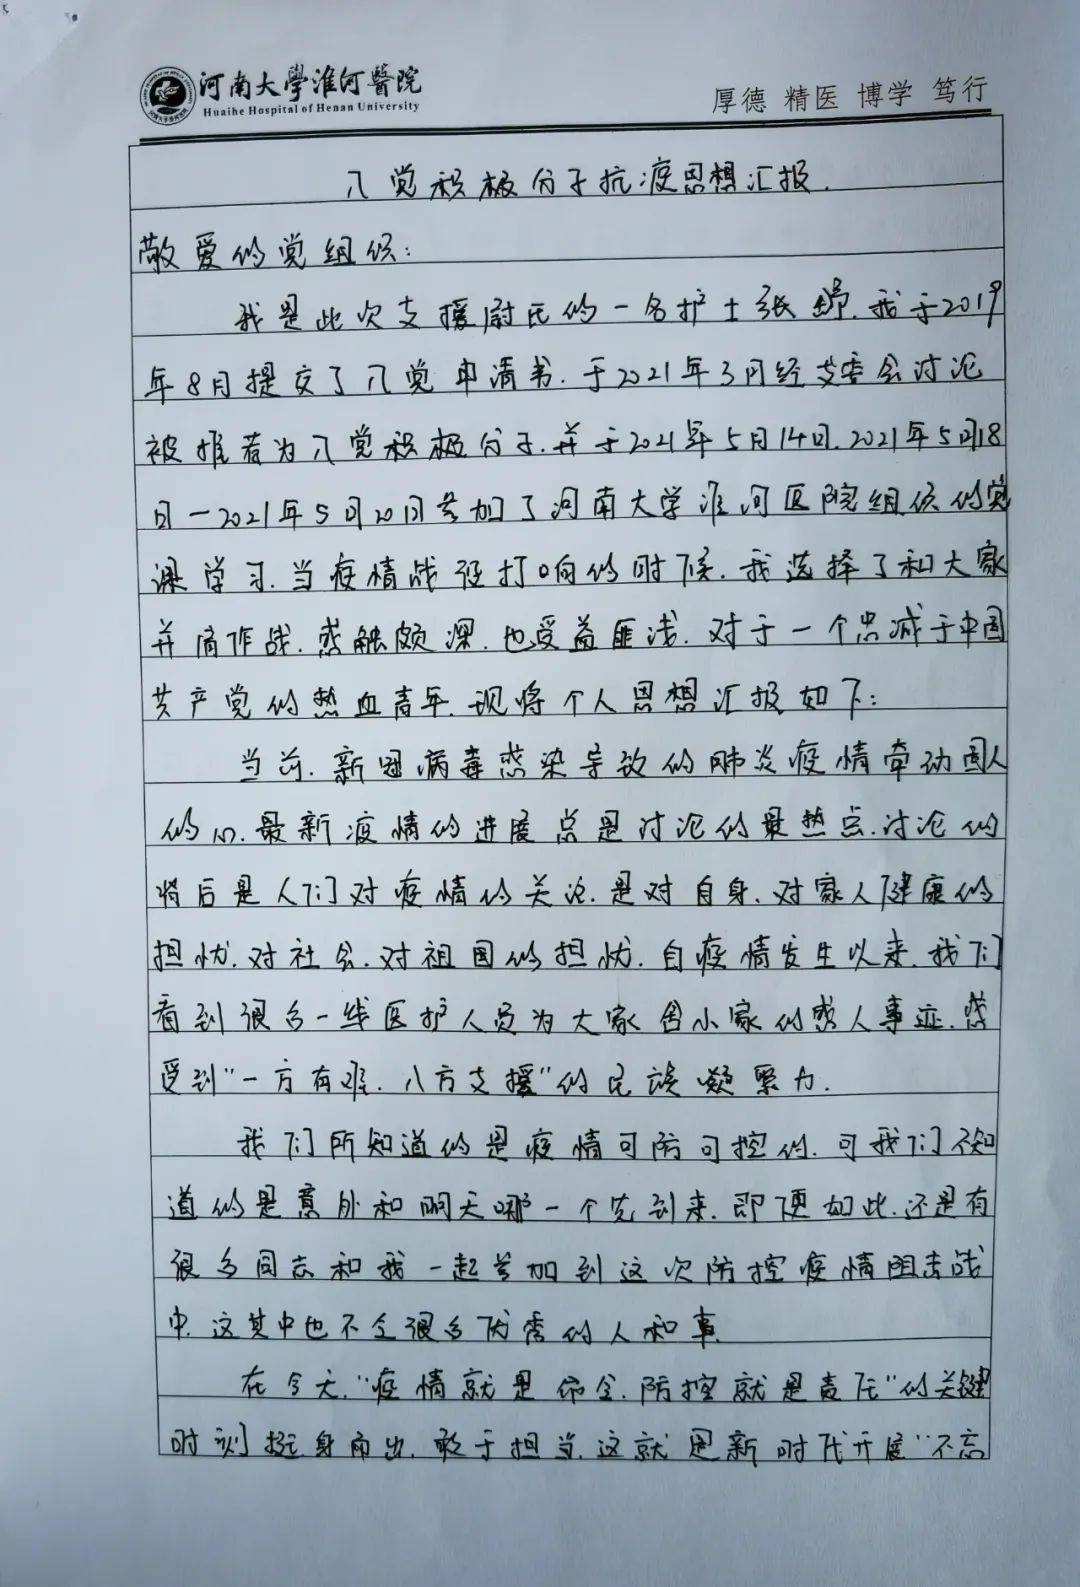 河南大學淮河醫院
Huaihe Hospital of Henan University
厚德 精医 博学 笃行
入党积极分子抗疫思想汇报.
敬爱的党组织:
我是此次支援尉氏的一名护士张舒.我于2019
年8月提交了入党申请书.于2021年3月经支委会讨论
被推荐为入党积极分子.并于2021年5月14日.2021年5月18
日—2021年5月20日参加了河南大学淮河医院组织的党
课学习.当疫情战役打响的时候.我选择了和大家
并肩作战.感触颇深.也受益匪浅.对于一个忠诚于中国
共产党的热血青年.现将个人思想汇报如下:
当前.新冠病毒感染导致的肺炎疫情牵动国人
的心.最新疫情的进展总是讨论的最热点.讨论的
背后是人们对疫情的关注.是对自身.对家人健康的
担忧.对社会.对祖国的担忧.自疫情发生以来.我们
看到很多一线医护人员为大家舍小家的感人事迹.感
受到"一方有难.八方支援"的民族凝聚力.
我们所知道的是疫情可防可控的.可我们不知
道的是意外和明天哪一个先到来.即便如此.还是有
很多同志和我一起参加到这次防控疫情阻击战
中.这其中也不乏很多优秀的人和事.
在今天."疫情就是命令.防控就是责任"的关键
时刻挺身而出.敢于担当.这就是新时代开展"不忘